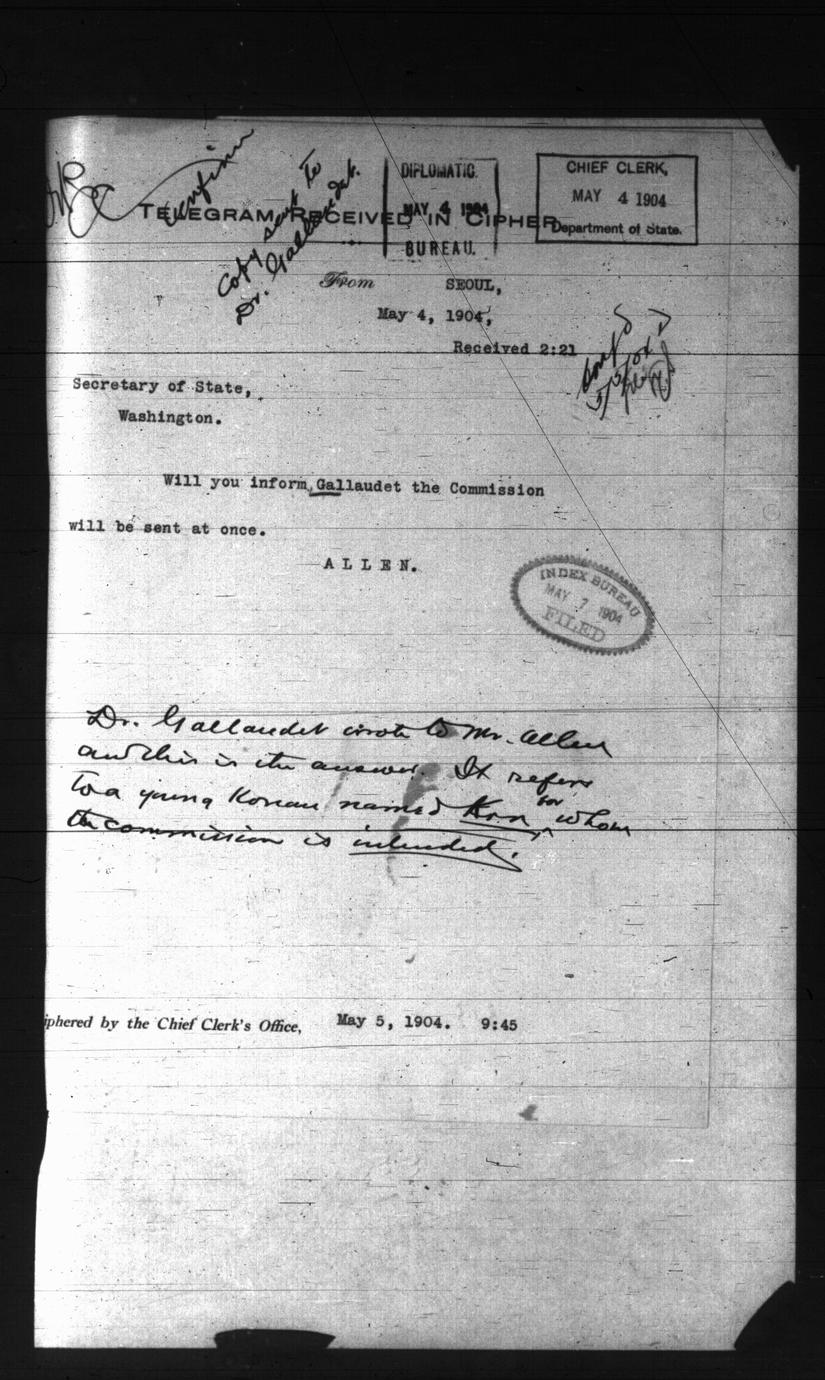 Confirm
Copy sent to
Dr. Gallaudet.
DIPLOMATIC
MAY 4 1904
BUREAU.
CHIEF CLERK,
MAY 4 1904
Department of State.
TELEGRAM RECEIVED IN CIPHER.
From SEOUL,
May 4, 1904,
Received 2:21
Conf'd
5/5/04
Secretary of State,
Washington.
Will you inform Gallaudet the Commission
will be sent at once.
ALLEN.
INDEX BUREAU
MAY 7 1904
FILED
Dr. Gallaudet wrote to Mr. Allen
and this is the answer. It refers
to a young Korean named for whom
the commission is intended.
iphered by the Chief Clerk's Office, May 5, 1904. 9:45